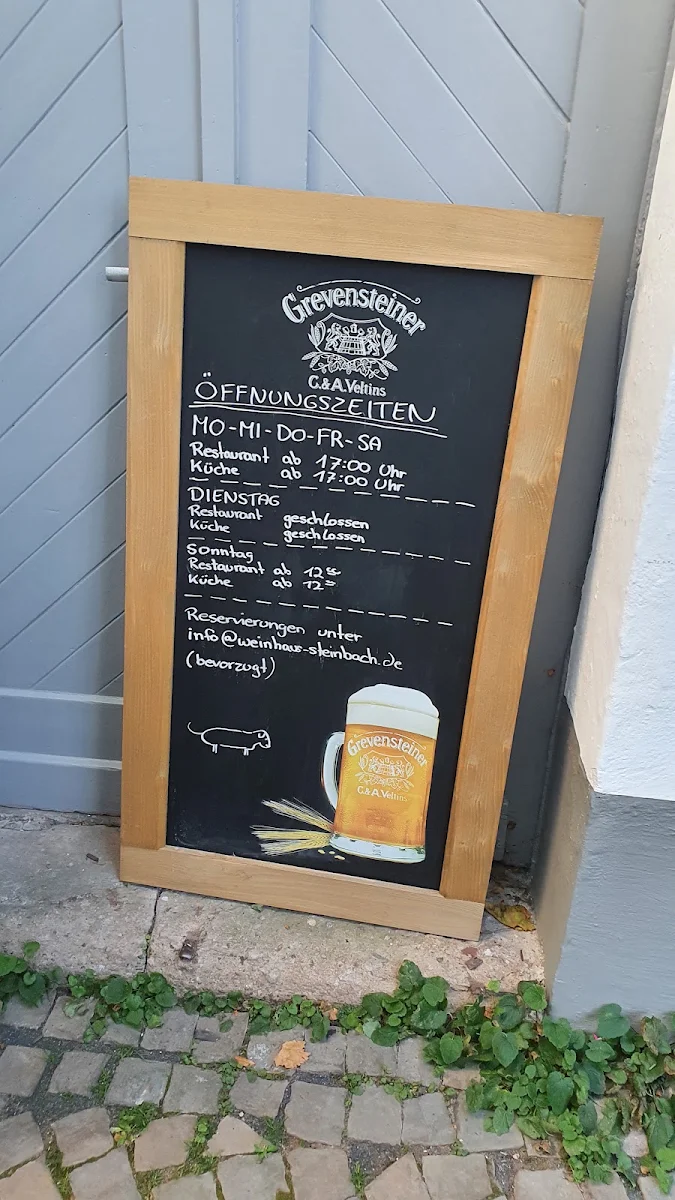 Grevensteiner
C.&A.Veltins
ÖFFNUNGSZEITEN
MO-MI-DO-FR-SA
Restaurant ab 17:00 Uhr
Küche ab 17:00 Uhr
DIENSTAG
Restaurant geschlossen
Küche geschlossen
Sonntag
Restaurant ab 12⁰⁰
Küche ab 12⁰⁰
Reservierungen unter
info@weinhaus-steinbach.de
(bevorzugt)
Grevensteiner
C.&A.Veltins